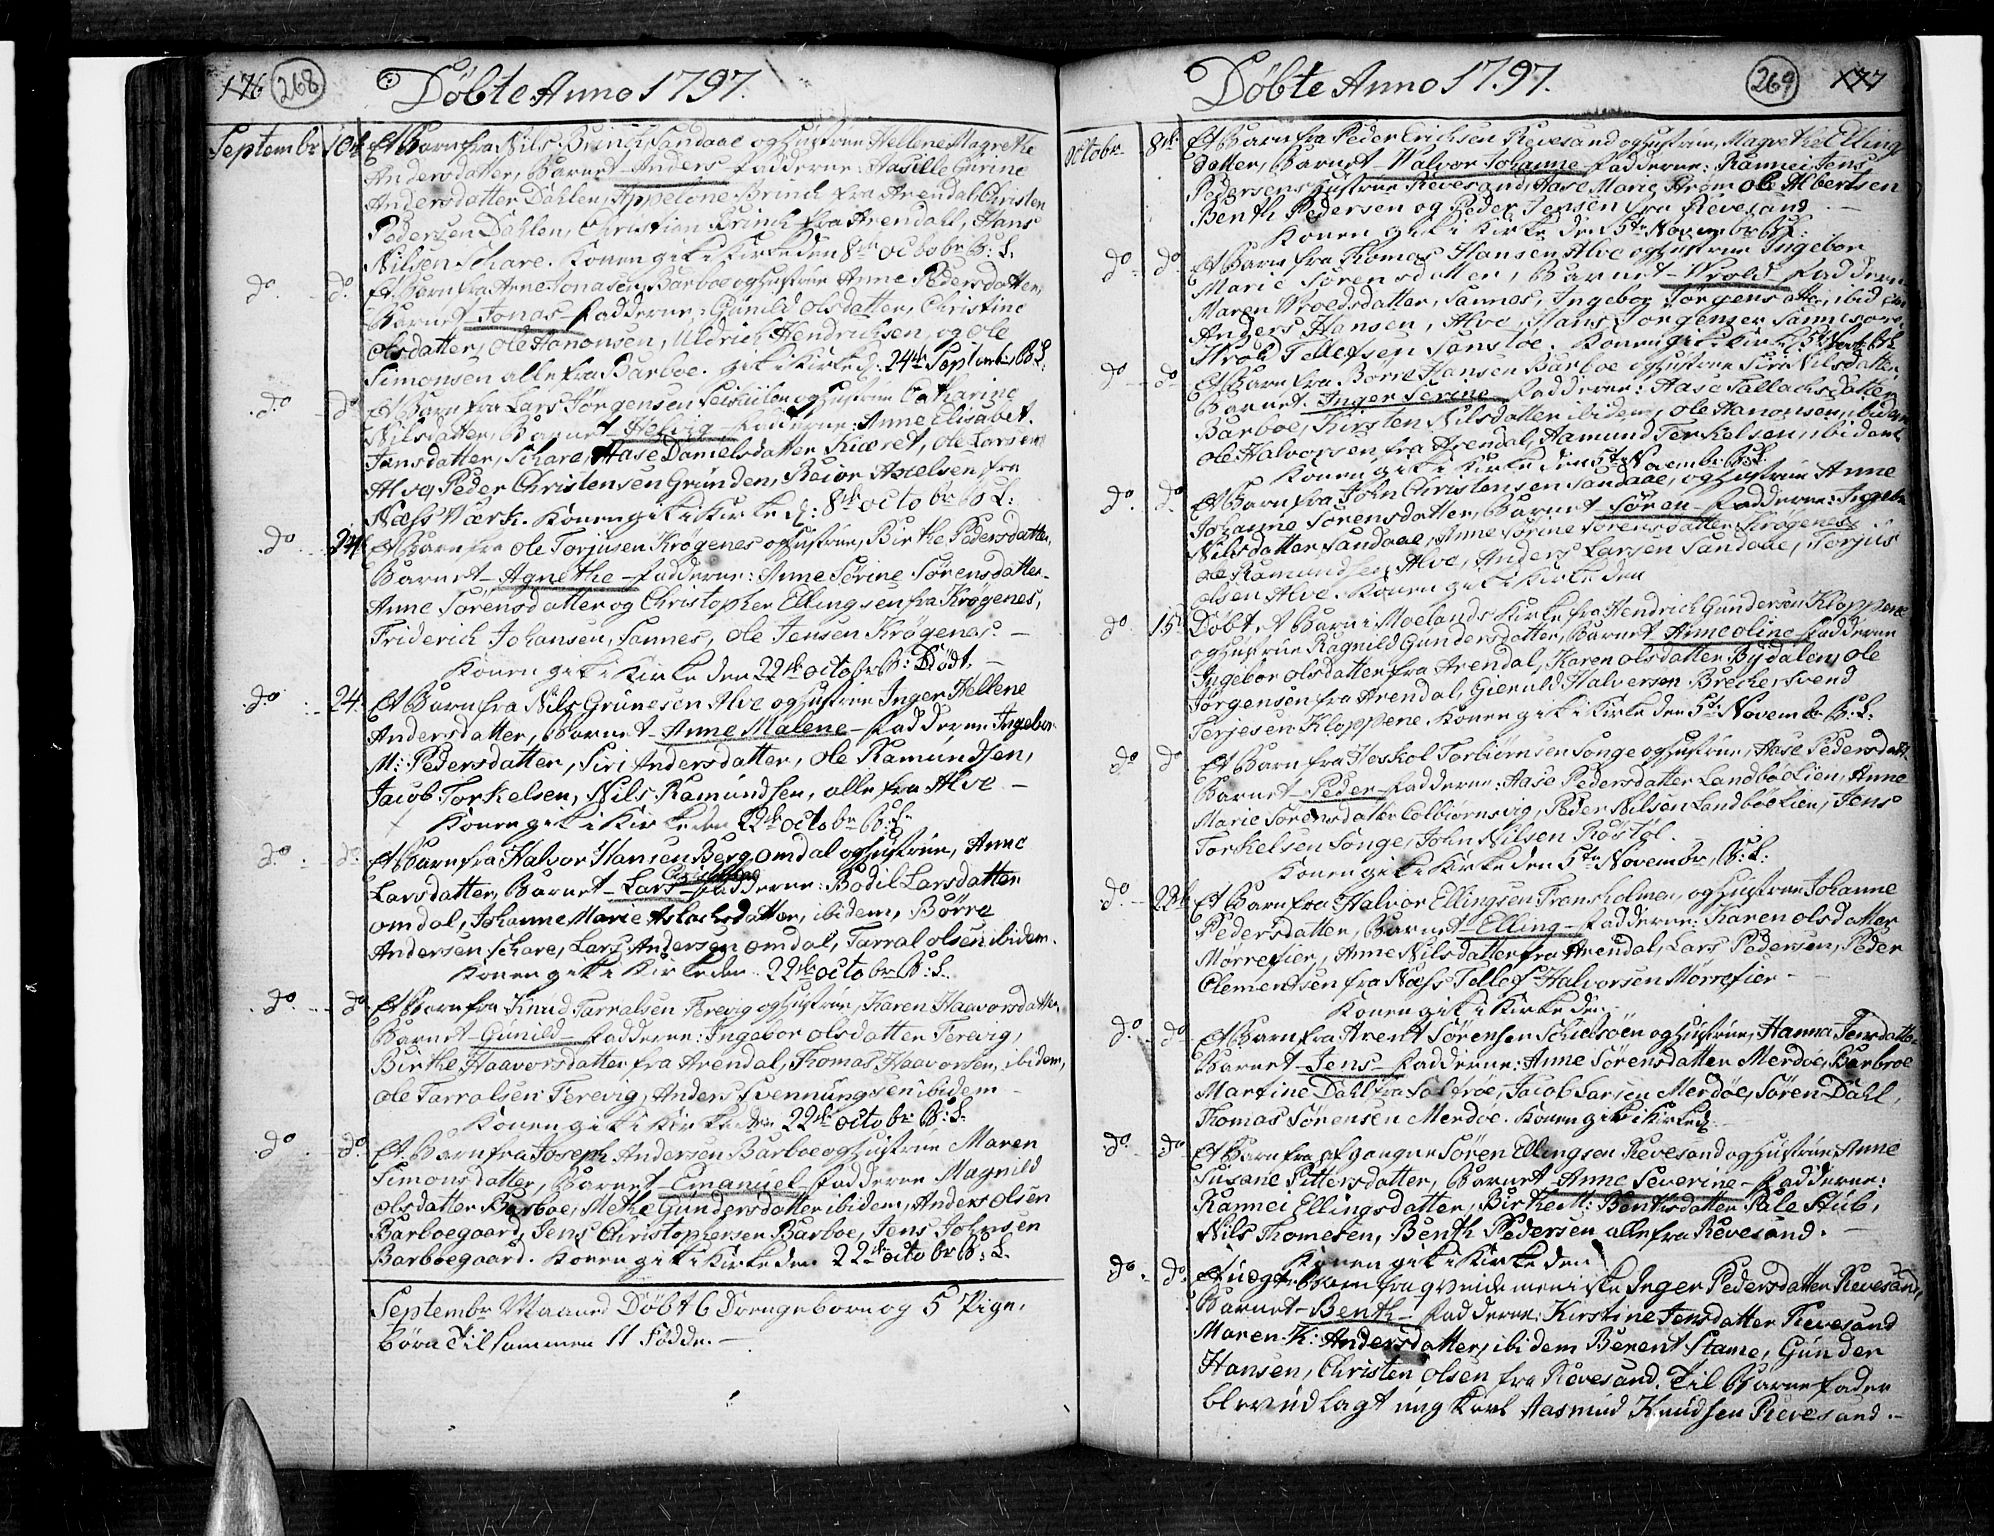 176 268 Döbte Anno 1797.
Septembr 10de Et Barn fra Nils Brinch Sandaae og Hustrue Hellene Magrethe
Andersdatter, Barnet Anders Fadderne: Hasille Gurine
Andersdatter Dahlen, Appelone Brinch fra Arendal, Christen
Pedersen Dahlen, Christian Brinch fra Arendahl, Hans
Nilsen Schare. Konen gik i Kirke den 8de octobr B: L.
do do Et Barn fra Arne Jonasen, Barboe og Hustrue Anne Pedersdatter,
Barnet Jonas Fadderne, Gunild olsdatter, Christine
olsdatter, ole Aanonsen, Uldrich Hendrichsen, og ole
Simonsen alle fra Barboe. gik i Kirke d: 24de Septembr B L.
do do Et Barn fra Lars Jørgensen og Hustrue Catharine
Nilsdatter, Barnet Helvig Fadderne: Anne Elisabet
Jansdatter, Schare, Aase Danielsdatter Kiæret, ole Larsen
Alve Peder Christensen Grunden, Reior Axelsen, fra
Næss Værk. Konen gik i Kirke d: 8de octobr B L:
do 24 Et Barn fra ole Torjusen Krøgenes og Hustrue, Birthe Pedersdatter,
Barnet Agnethe Fadderne: Anne Sørine Sørensdatter
Anne Sørensdatter og Christopher Ellingsen fra Krøgenes,
Friderich Johansen, Sannes, ole Jensen Krøgenes.
Konen gik i Kirke den 22de octobr B: Död
do 24. Et Barn fra Nils Grunesen Alve og Hustrue Inger Hellene
Andersdatter, Barnet Anne Malene Fadderne Ingebor
M: Pedersdatter, Siri Andersdatter, ole Ramundsen,
Jacob Torkelsen, Nils Ramundsen, alle fra Alve
Konen gik i Kirke den 22de octobr B: L
do do Et Barn fra Halvor Hansen Berg omdal og Hustrue, Anne
Larsdatter, Barnet Lars Christian Fadderne: Bodil Larsdatter
omdal, Johanne Marie Aslachsdatter, ibidem, Børre
Andersen Schare, Lars Andersen omdal, Tarral olsen ibidem.
Konen gik i Kirke den 22de octobr B: L.
do do Et Barn fra Knud Tarralsen Ferevig og Hustrue, Karen Haavorsdatter,
Barnet Gunild Fadderne: Ingebor olsdatter Ferevig,
Birthe Haavorsdatter fra Arendal, Thomas Haavorsen, ibidem,
ole Tarralsen Ferevig, Anders Svennungsen ibidem
Konen gik i Kirke den 22de octobr B: L.
do do Et Barn fra Joseph Andersen Barboe og Hustrue Maren
Simonsdatter, Barnet Emanuel Fadderne Magnild
olsdatter Barboe, Methe Gundersdatter ibidem, Anders olsen
Barboegaard, Jens Christophersen Barboe, Jens Johnsen
Barboegaard. Konen gik i Kirke den 22de octobr B: L.
Septembr Maaned Döbt 6 Drengeborn og 5 Pige
börn Tilsammen 11 Födde.
Döbte Anno 1797. 269 177
Octobr 8de Et Barn fra Peder Erichsen Revesand og Hustrue, Magrethe Ellings
datter, Barnet Halvor Johanne Fadderne: Rannei Jens
Pedersens Hustrue Revesand, Aase Marie Strøm ole Albertsen
Benth Pedersen og Peder Jensen fra Revesand
Konen gik i Kirke den 5te Novembr B L:
do do Et Barn fra Thomas Hansen Alve og Hustrue Ingebor
Marie Sørensdatter, Barnet Wrold Fadderne
Maren Wroldsdatter, Sannes, Ingebor Jørgensdatter, ibidem
Anders Hansen, Alve, Hans Jørgensen
Wrold Tellefsen Konen gik i Kirke 5te Novbr BL
do do Et Barn fra Børre Hansen Barboe og Hustrue Siri Nilsdatter
Barnet Inger Serine Fadderne: Aase Tallachsdatter
Barboe, Kirsten Nilsdatter ibidem, ole Aanonsen, ibidem
ole Halvorsen fra Arendal, Aamund Terkelsen, ibidem
Konen gik i Kirke den 5te Novembr B L.
do do Et Barn fra John Christensen Sandaae, og Hustrue Anne
Johanne Sørensdatter, Barnet Søren Fadderne: Ingebr
Nilsdatter Sandaae, Anne Sørine Sørensdatter Krøgenes
ole Ramundsen Alve, Anders Larsen Sandaae, Torjus
olsen Alve. Konen gik i Kirke den
do 15 Döbt et Barn i Moelands Kirke fra Hendrich Gundersen Kloppene
og Hustrue Ragnild Gundersdatter, Barnet Anne oline Fadderne
Ingebor olsdatter fra Arendal, Karen olsdatter Bydalen, ole
Jørgensen fra Arendal, Gieruld Halversen Breche, Svend
Terjesen Kloppene. Konen gik i Kirke den 5te Novembr B: L:
do do Et Barn fra Heskol Torbiørnsen Songe og Hustrue, Aase Pedersdatt
Barnet Peder Fadderne: Aase Pedersdatter Landbøe Lien, Anne
Marie Sørensdatter Colbiørnsvig, Peder Nilsen Landbøe Lien, Jens
Torkelsen Songe, John Nilsen Röstöl.
Konen gik i Kirke den 5te Novembr, B: L:
do 22de Et Barn fra Halvor Ellingsen Tromholmen og Hustrue Johanne
Pedersdatter, Barnet Elling Fadderne: Karen olsdatter
Mørrefier, Anne Nilsdatter fra Arendal, Lars Pedersen, Peder
Clementsen fra Næss Tellef Halvorsen Mørrefier
Konen gik i Kirke den
do do Et Barn fra Arent Sørensen Schielsöen og Hustrue, Hanna Jensdatter
Barnet Jens Fadderne: Anne Sørensdatter Merdøe, Barbroe
Martine Dahl fra Jacob Larsen Merdøe, Søren Dahl,
Thomas Sørensen Merdøe. Konen gik i Kirke d:
do do Et Barn fra afgangne Søren Ellingsen Revesand og Hustrue, Anne
Susane Pittersdatter, Barnet Anne Severine Fadderne:
Rannei Ellingsdatter, Birthe M: Benthsdatter Pale Stub,
Nils Thomesen, Benth Pedersen alle fra Revesand.
Konen gik i Kirke den
do do Et uægte barn fra qvindemeniske Inger Pedersdatter Revesand,
Barnet Benth Fadderne: Kirstine Jensdatter Revesand
Maren K: Andersdatter, ibidem Berent Stame, Gunder
Hansen, Christen olsen fra Revesand. Til Barnefader
blev udlagt ung Karl Aasmud Knudsen Revesand.